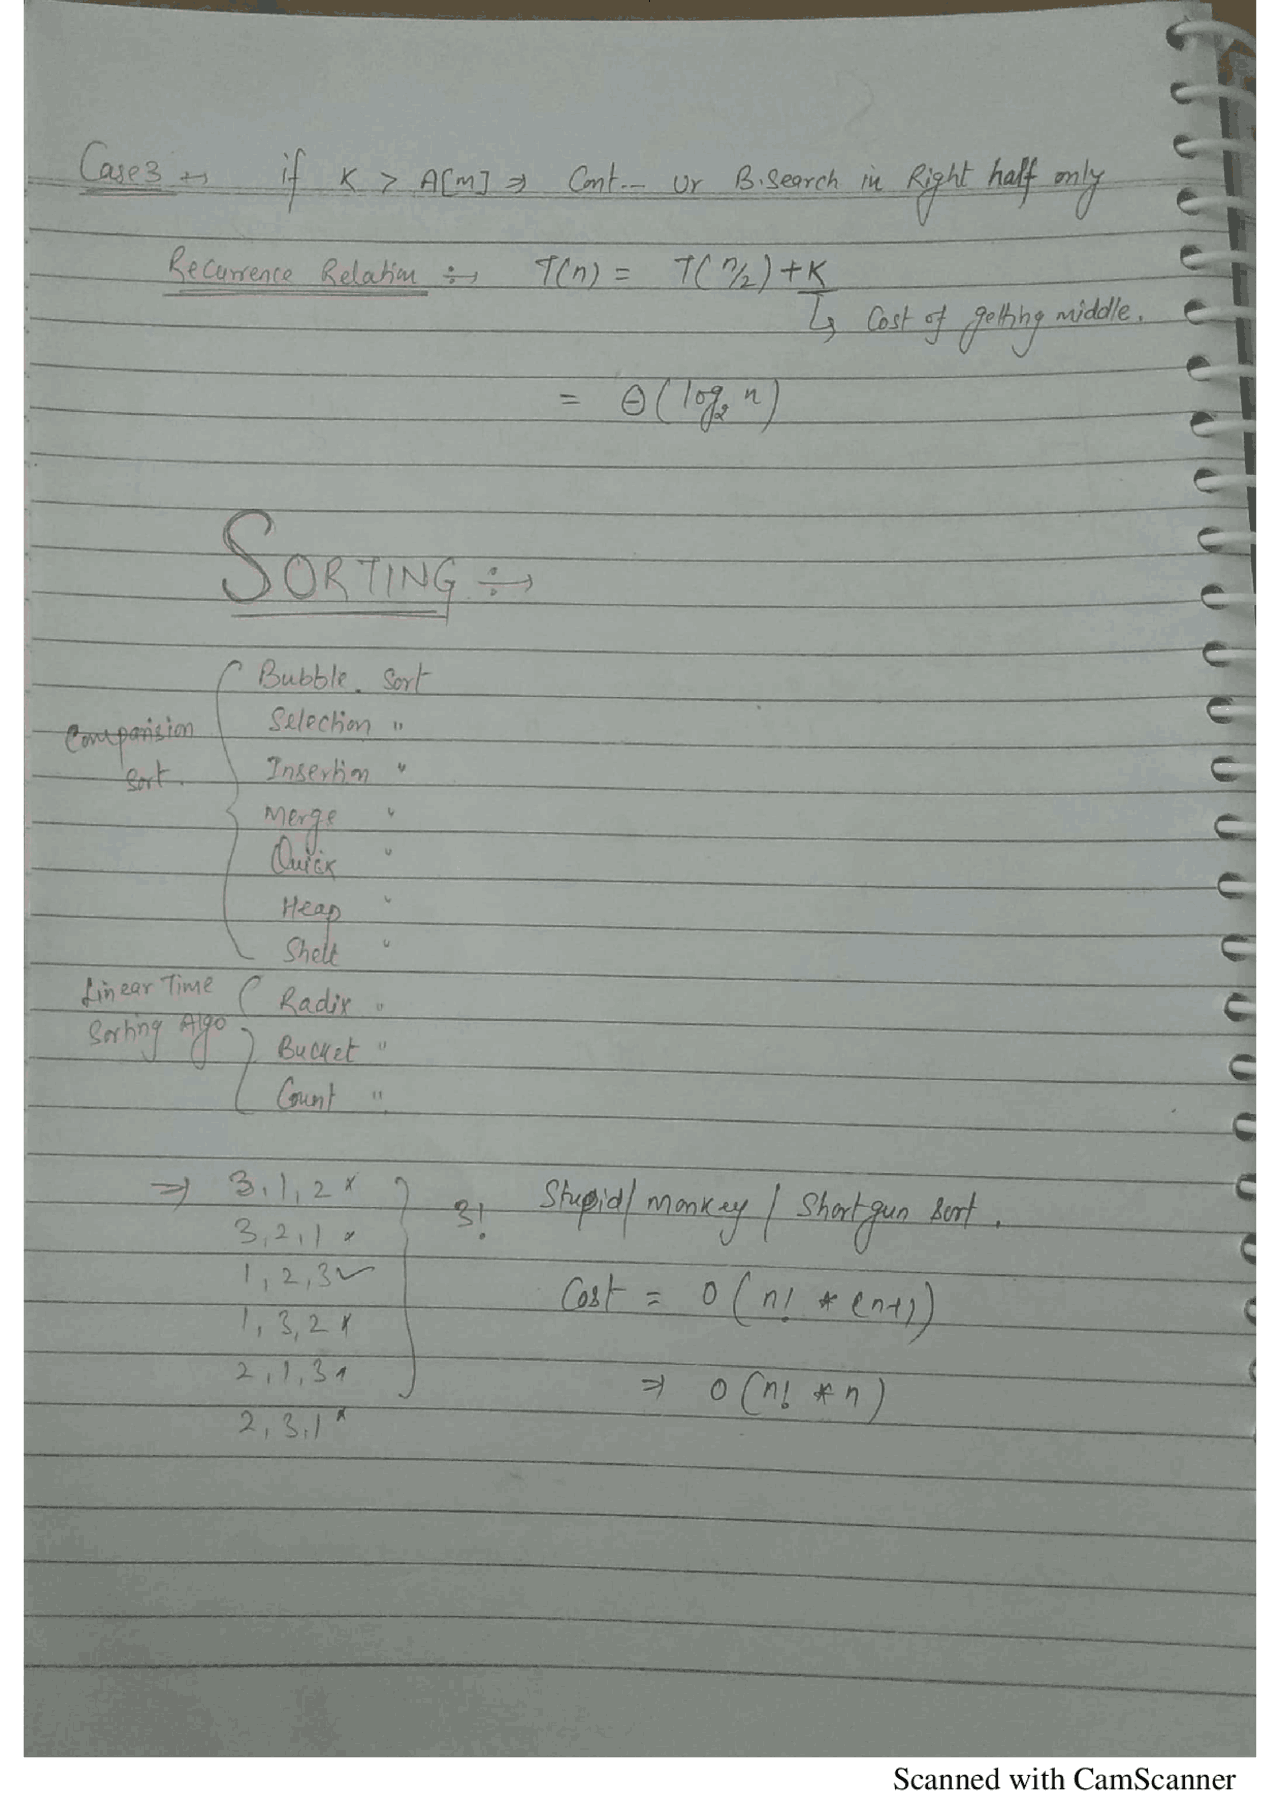 Case3 → if K > A[m] ⇒ Cont... Ur B.Search in Right half only
Recurrence Relation ÷→ T(n) = T(n/2) + K
↳ Cost of getting middle.
= Θ(log₂ n)
SORTING ÷→
Comparision Sort.
Bubble Sort
Selection "
Insertion "
Merge "
Quick "
Heap "
Shell "
Linear Time Sorting Algo
Radix "
Bucket "
Count "
⇒ 3,1,2 x
3,2,1 x
1,2,3 ✓
1,3,2 x
2,1,3 x
2,3,1 x
3!
Stupid/ Monkey / Shortgun Sort.
Cost = O(n! * (n+1))
⇒ O(n! * n)
Scanned with CamScanner